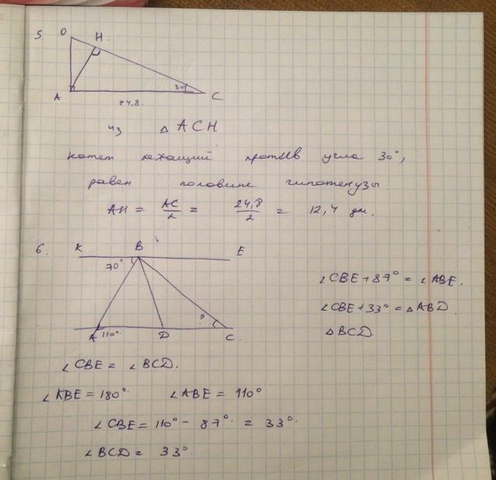 5.
D H
30°
A C
24,8
из △ ACH
катет лежащий против угла 30°,
равен половине гипотенузы
AH = AC/2 = 24,8/2 = 12,4 дм.
6.
K B E
70°
?
A 110° D C
∠CBE + 87° = ∠ABE.
∠CBE + 33° = △ABD
△BCD
∠CBE = ∠BCD.
∠KBE = 180° ∠ABE = 110°
∠CBE = 110° - 87° = 33°
∠BCD = 33°